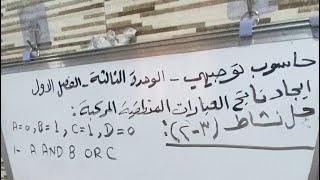 حاسوب توجيهي - الوحدة الثالثة - الفصل الاول
ايجاد ناتج العبارات المنطقية المركبة :
حل نشاط (٣-٢) :
A=0, B=1, C=1, D=0
1- A AND B OR C